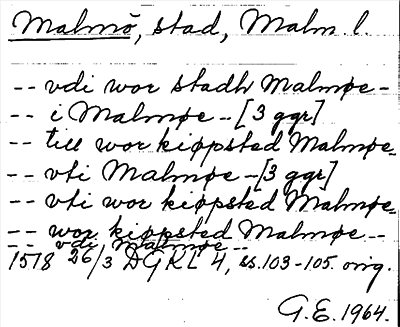 Malmö, stad, Malm. l.
-- vdi wor stadh Malmøe -
-- i Malmøe -- [3 ggr]
-- till wor kiøpsted Malmøe -
-- vti Malmøe -- [3 ggr]
-- vti wor kiøpsted Malmøe -
-- wor kiøpsted Malmøe --
-- vdi Malmøe --
1578 26/3 DGKL 4, ss. 103-105. orig.
G.E. 1964.